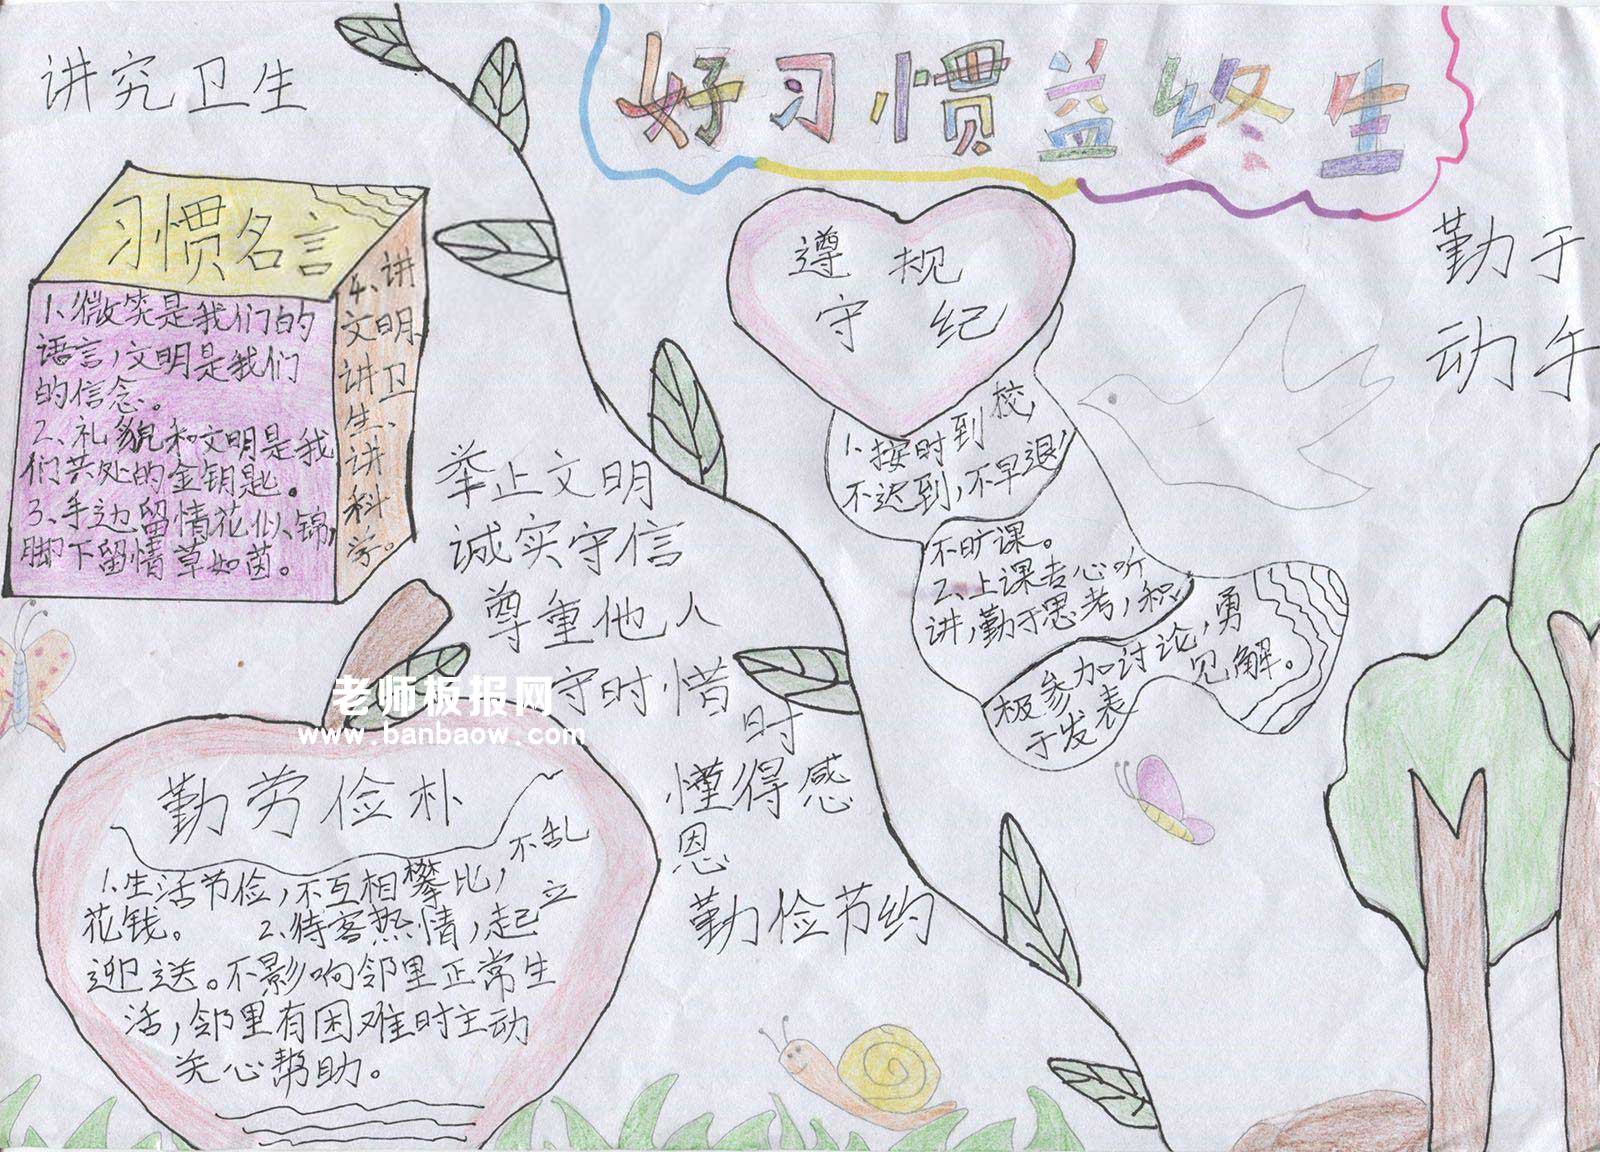 讲究卫生
好习惯益终生
习惯名言
1、微笑是我们的
语言,文明是我们
的信念。
2、礼貌和文明是我
们共处的金钥匙。
3、手边留情花似锦,
脚下留情草如茵。
4、讲
文明、
讲卫
生、
讲
科
学。
遵规
守纪
1.按时到校,
不达到,不早退,
不旷课。
2、上课专心听
讲,勤于思考,积
极参加讨论,勇
于发表见解。
勤于
动手
举止文明
诚实守信
尊重他人
守时惜
时
懂得感
恩
勤俭节约
老师板报网
www.banbaow.com
勤劳俭朴
1.生活节俭,不互相攀比,不乱
花钱。 2.待客热情,起立
迎送。不影响邻里正常生
活,邻里有困难时主动
关心帮助。